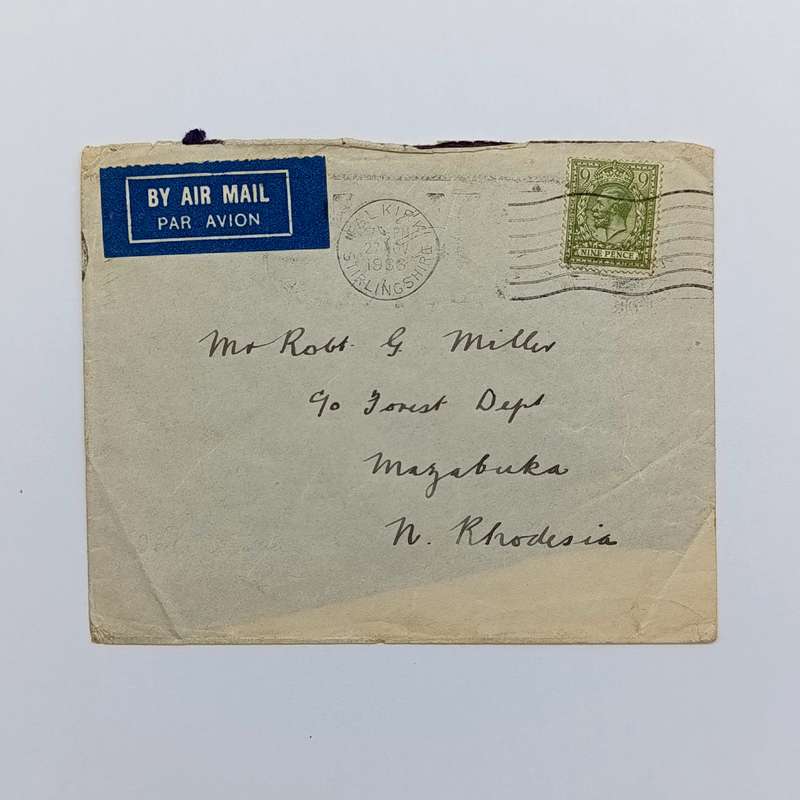 BY AIR MAIL
PAR AVION
FALKIRK
STIRLINGSHIRE
9 9
NINE PENCE
Mr Robt. G. Miller
c/o Forest Dept
Mazabuka
N. Rhodesia